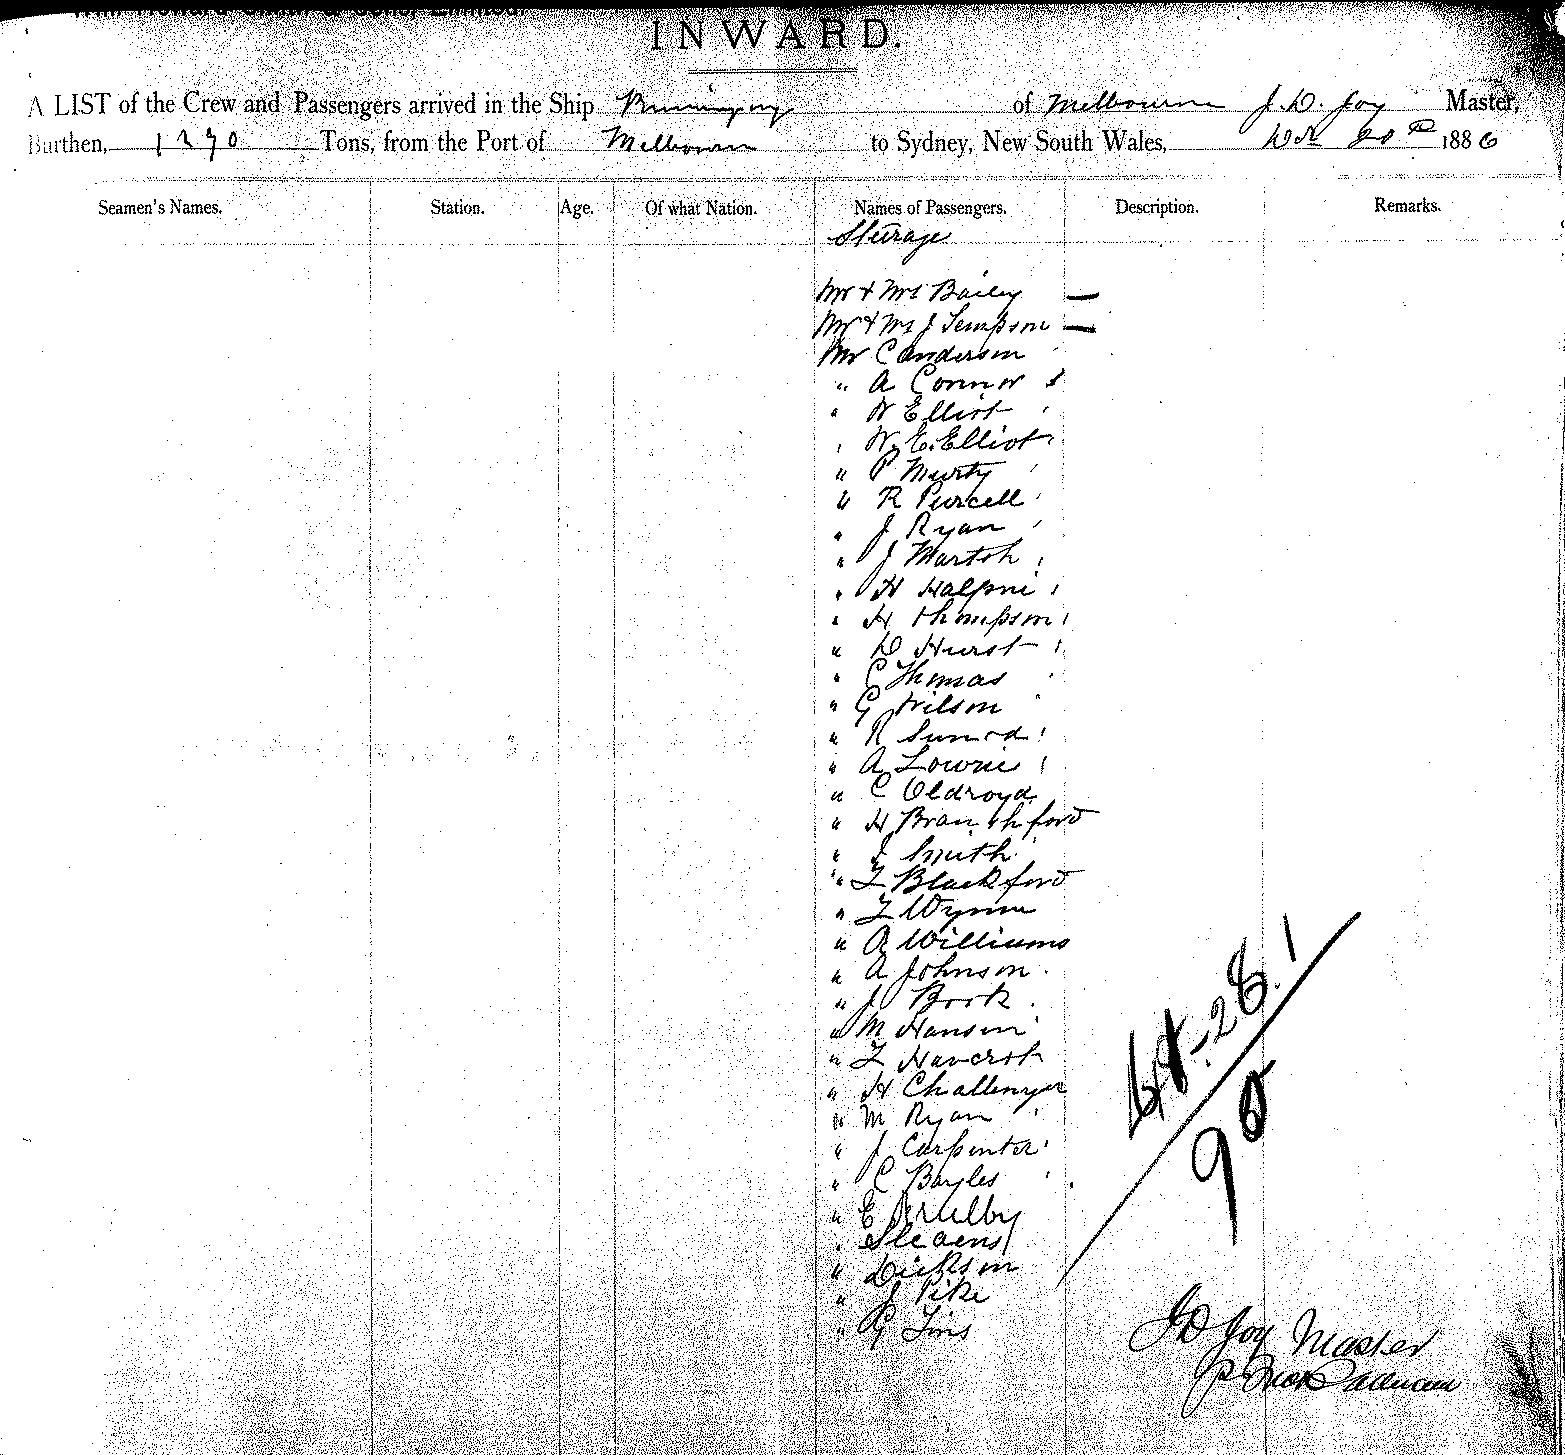 INWARD.
A LIST of the Crew and Passengers arrived in the Ship Buninyong of Melbourne J. D. Joy Master,
Burthen, 1290 Tons, from the Port of Melbourn to Sydney, New South Wales, 20th 1886
Seamen's Names. Station. Age. Of what Nation. Names of Passengers. Description. Remarks.
Steerage
Mr & Mrs Bailey —
Mr & Mrs J Sempson —
Mr C Anderson
" A Connor
" W Elliot
" W. E. Elliot
" P Murty
" R Purcell
" J Ryan
" J
" H Halpni
" H Thompson
" D Hurst
" C Thomas
" G Wilson
" R
" A Lowrie
" C Oldroyd
" H Branchford
" J Smith
" T Blackford
" T Wynne
" A Williams
" A Johnson
" J Book
" M Hansen
" T
" H Challenger
" M Ryan
" J Carpenter
" C Bayles
" E
" Steaens
" Dickson
" J Pike
" G
28
90
J D Joy Master